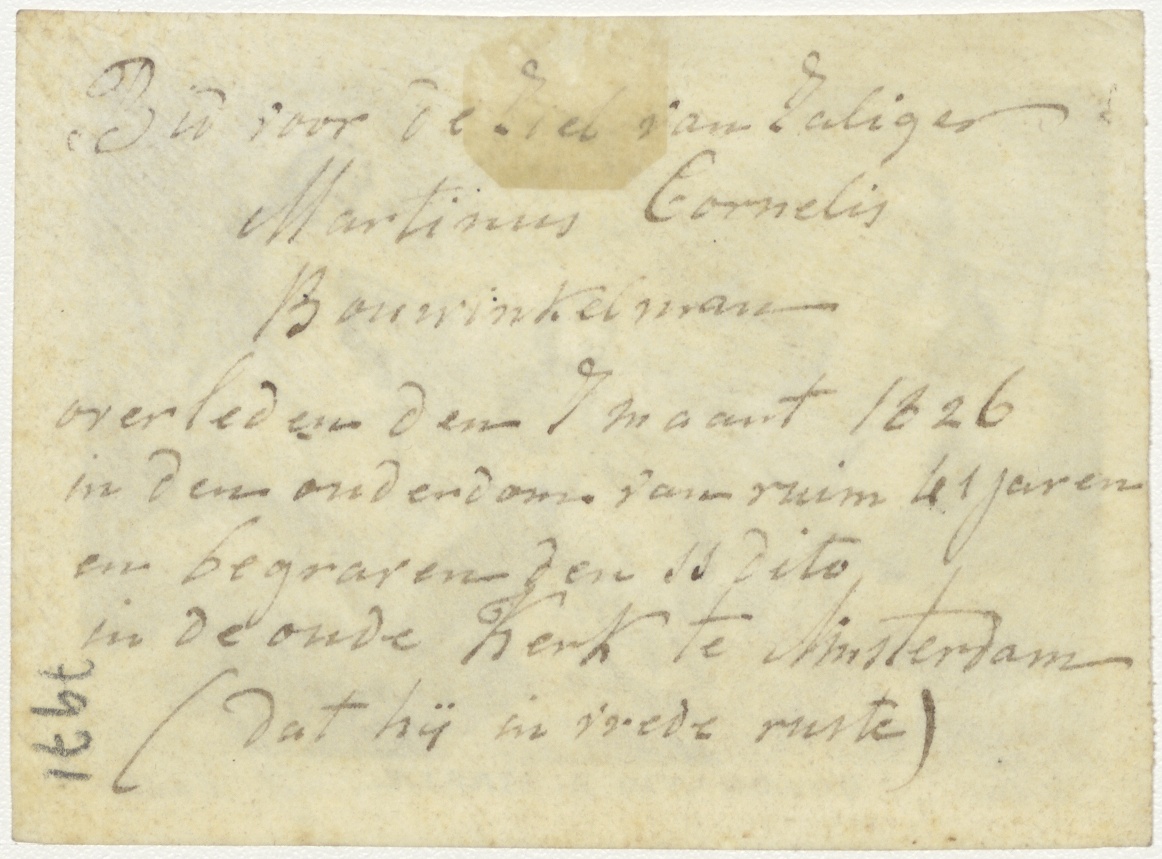 Bid voor de Ziel van Zaliger
Martinus Cornelis
Bouwinkelman
overleden den 7 maart 1826
in den ouderdom van ruim 41 jaren
en begraven den 11 dito
in de oude Kerk te Amsterdam
(dat hij in vrede ruste)